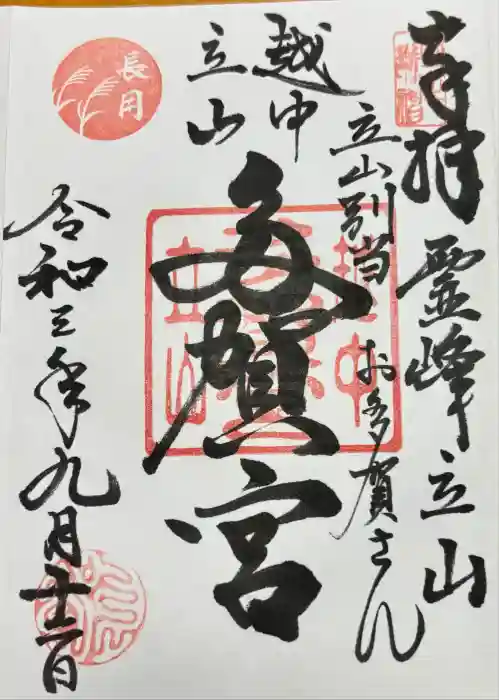 奉拝 霊峰立山
立山別当 お多賀さん
越中
立山
多賀宮
長月
令和三年九月十二日